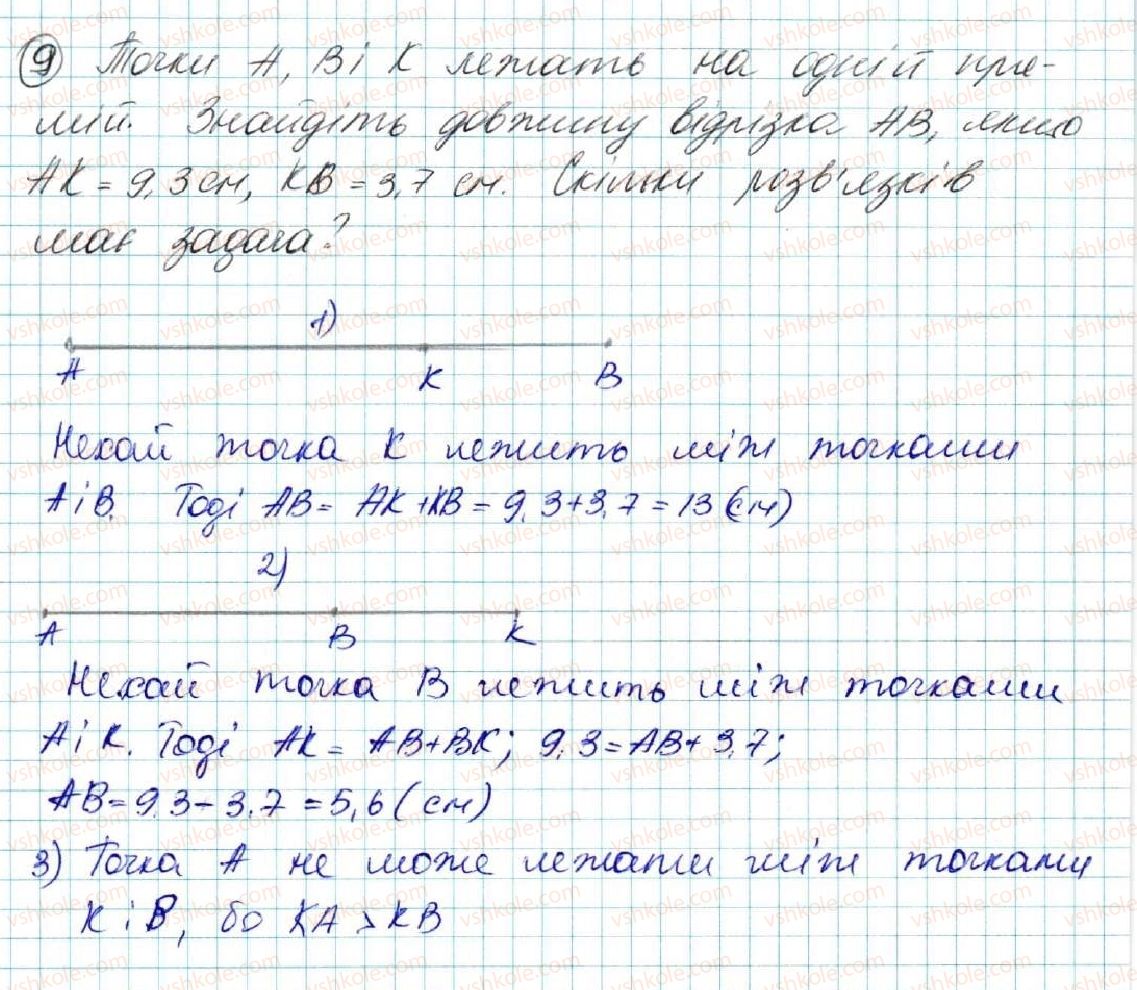 9 Точки А, В і К лежать на одній пря-
мій. Знайдіть довжину відрізка АВ, якщо
АК = 9,3 см, КВ = 3,7 см. Скільки розв'язків
має задача?
1)
А К В
Нехай точка К лежить між точками
А і В. Тоді АВ = АК + КВ = 9,3 + 3,7 = 13 (см)
2)
А В К
Нехай точка В лежить між точками
А і К. Тоді АК = АВ + ВК; 9,3 = АВ + 3,7;
АВ = 9,3 - 3,7 = 5,6 (см)
3) Точка А не може лежати між точками
К і В, бо КА > КВ
vshkole.com